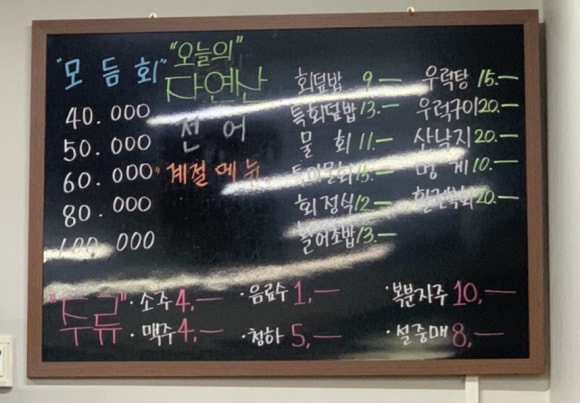 "모듬회"
40.000
50.000
60.000
80.000
100.000
"오늘의"
자연산
선어
"계절메뉴
회덮밥 9.—
특회덮밥 13.—
물회 11.—
15.—
회정식 12.—
놀어초밥 13.—
우럭탕 15.—
우럭구이 20.—
산낙지 20.—
멍게 10.—
20.—
"주류"
·소주 4,—
·맥주 4,—
·음료수 1,—
·청하 5,—
·복분자주 10,—
·설중매 8,—